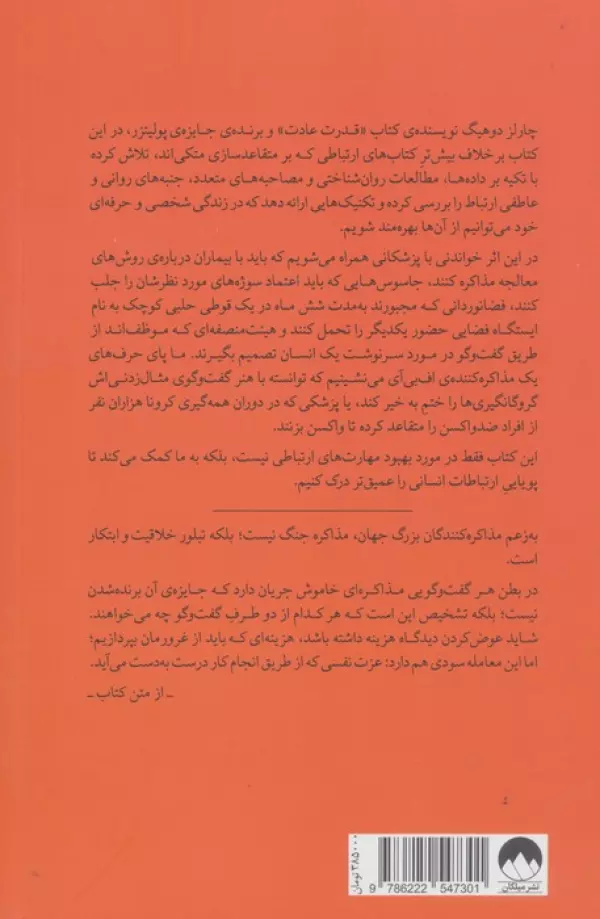 چارلز دوهیگ نویسنده‌ی کتاب «قدرت عادت» و برنده‌ی جایزه‌ی پولیتزر، در این
کتاب برخلاف بیش‌تر کتاب‌های ارتباطی که بر متقاعدسازی متکی‌اند، تلاش کرده
با تکیه بر داده‌ها، مطالعات روان‌شناختی و مصاحبه‌های متعدد، جنبه‌های روانی و
عاطفی ارتباط را بررسی کرده و تکنیک‌هایی ارائه دهد که در زندگی شخصی و حرفه‌ای
خود می‌توانیم از آن‌ها بهره‌مند شویم.
در این اثر خواندنی با پزشکانی همراه می‌شویم که باید با بیماران درباره‌ی روش‌های
معالجه مذاکره کنند، جاسوس‌هایی که باید اعتماد سوژه‌های مورد نظرشان را جلب
کنند، فضانوردانی که مجبورند به‌مدت شش ماه در یک قوطی حلبی کوچک به نام
ایستگاه فضایی حضور یکدیگر را تحمل کنند و هیئت‌منصفه‌ای که موظف‌اند از
طریق گفت‌وگو در مورد سرنوشت یک انسان تصمیم بگیرند. ما پای حرف‌های
یک مذاکره‌کننده‌ی اف‌بی‌آی می‌نشینیم که توانسته با هنر گفت‌وگوی مثال‌زدنی‌اش
گروگانگیری‌ها را ختم به خیر کند، یا پزشکی که در دوران همه‌گیری کرونا هزاران نفر
از افراد ضدواکسن را متقاعد کرده تا واکسن بزنند.
این کتاب فقط در مورد بهبود مهارت‌های ارتباطی نیست، بلکه به ما کمک می‌کند تا
پویاییِ ارتباطات انسانی را عمیق‌تر درک کنیم.
به‌زعم مذاکره‌کنندگان بزرگ جهان، مذاکره جنگ نیست؛ بلکه تبلور خلاقیت و ابتکار
است.
در بطن هر گفت‌وگویی مذاکره‌ای خاموش جریان دارد که جایزه‌ی آن برنده‌شدن
نیست؛ بلکه تشخیص این است که هر کدام از دو طرفِ گفت‌وگو چه می‌خواهند.
شاید عوض‌کردن دیدگاه هزینه داشته باشد، هزینه‌ای که باید از غرورمان بپردازیم؛
اما این معامله سودی هم دارد: عزت نفسی که از طریق انجام کار درست به‌دست می‌آید.
ـ از متن کتاب ـ
۳۸۵۰۰۰ تومان
9 786222 547301
نشر میلکان